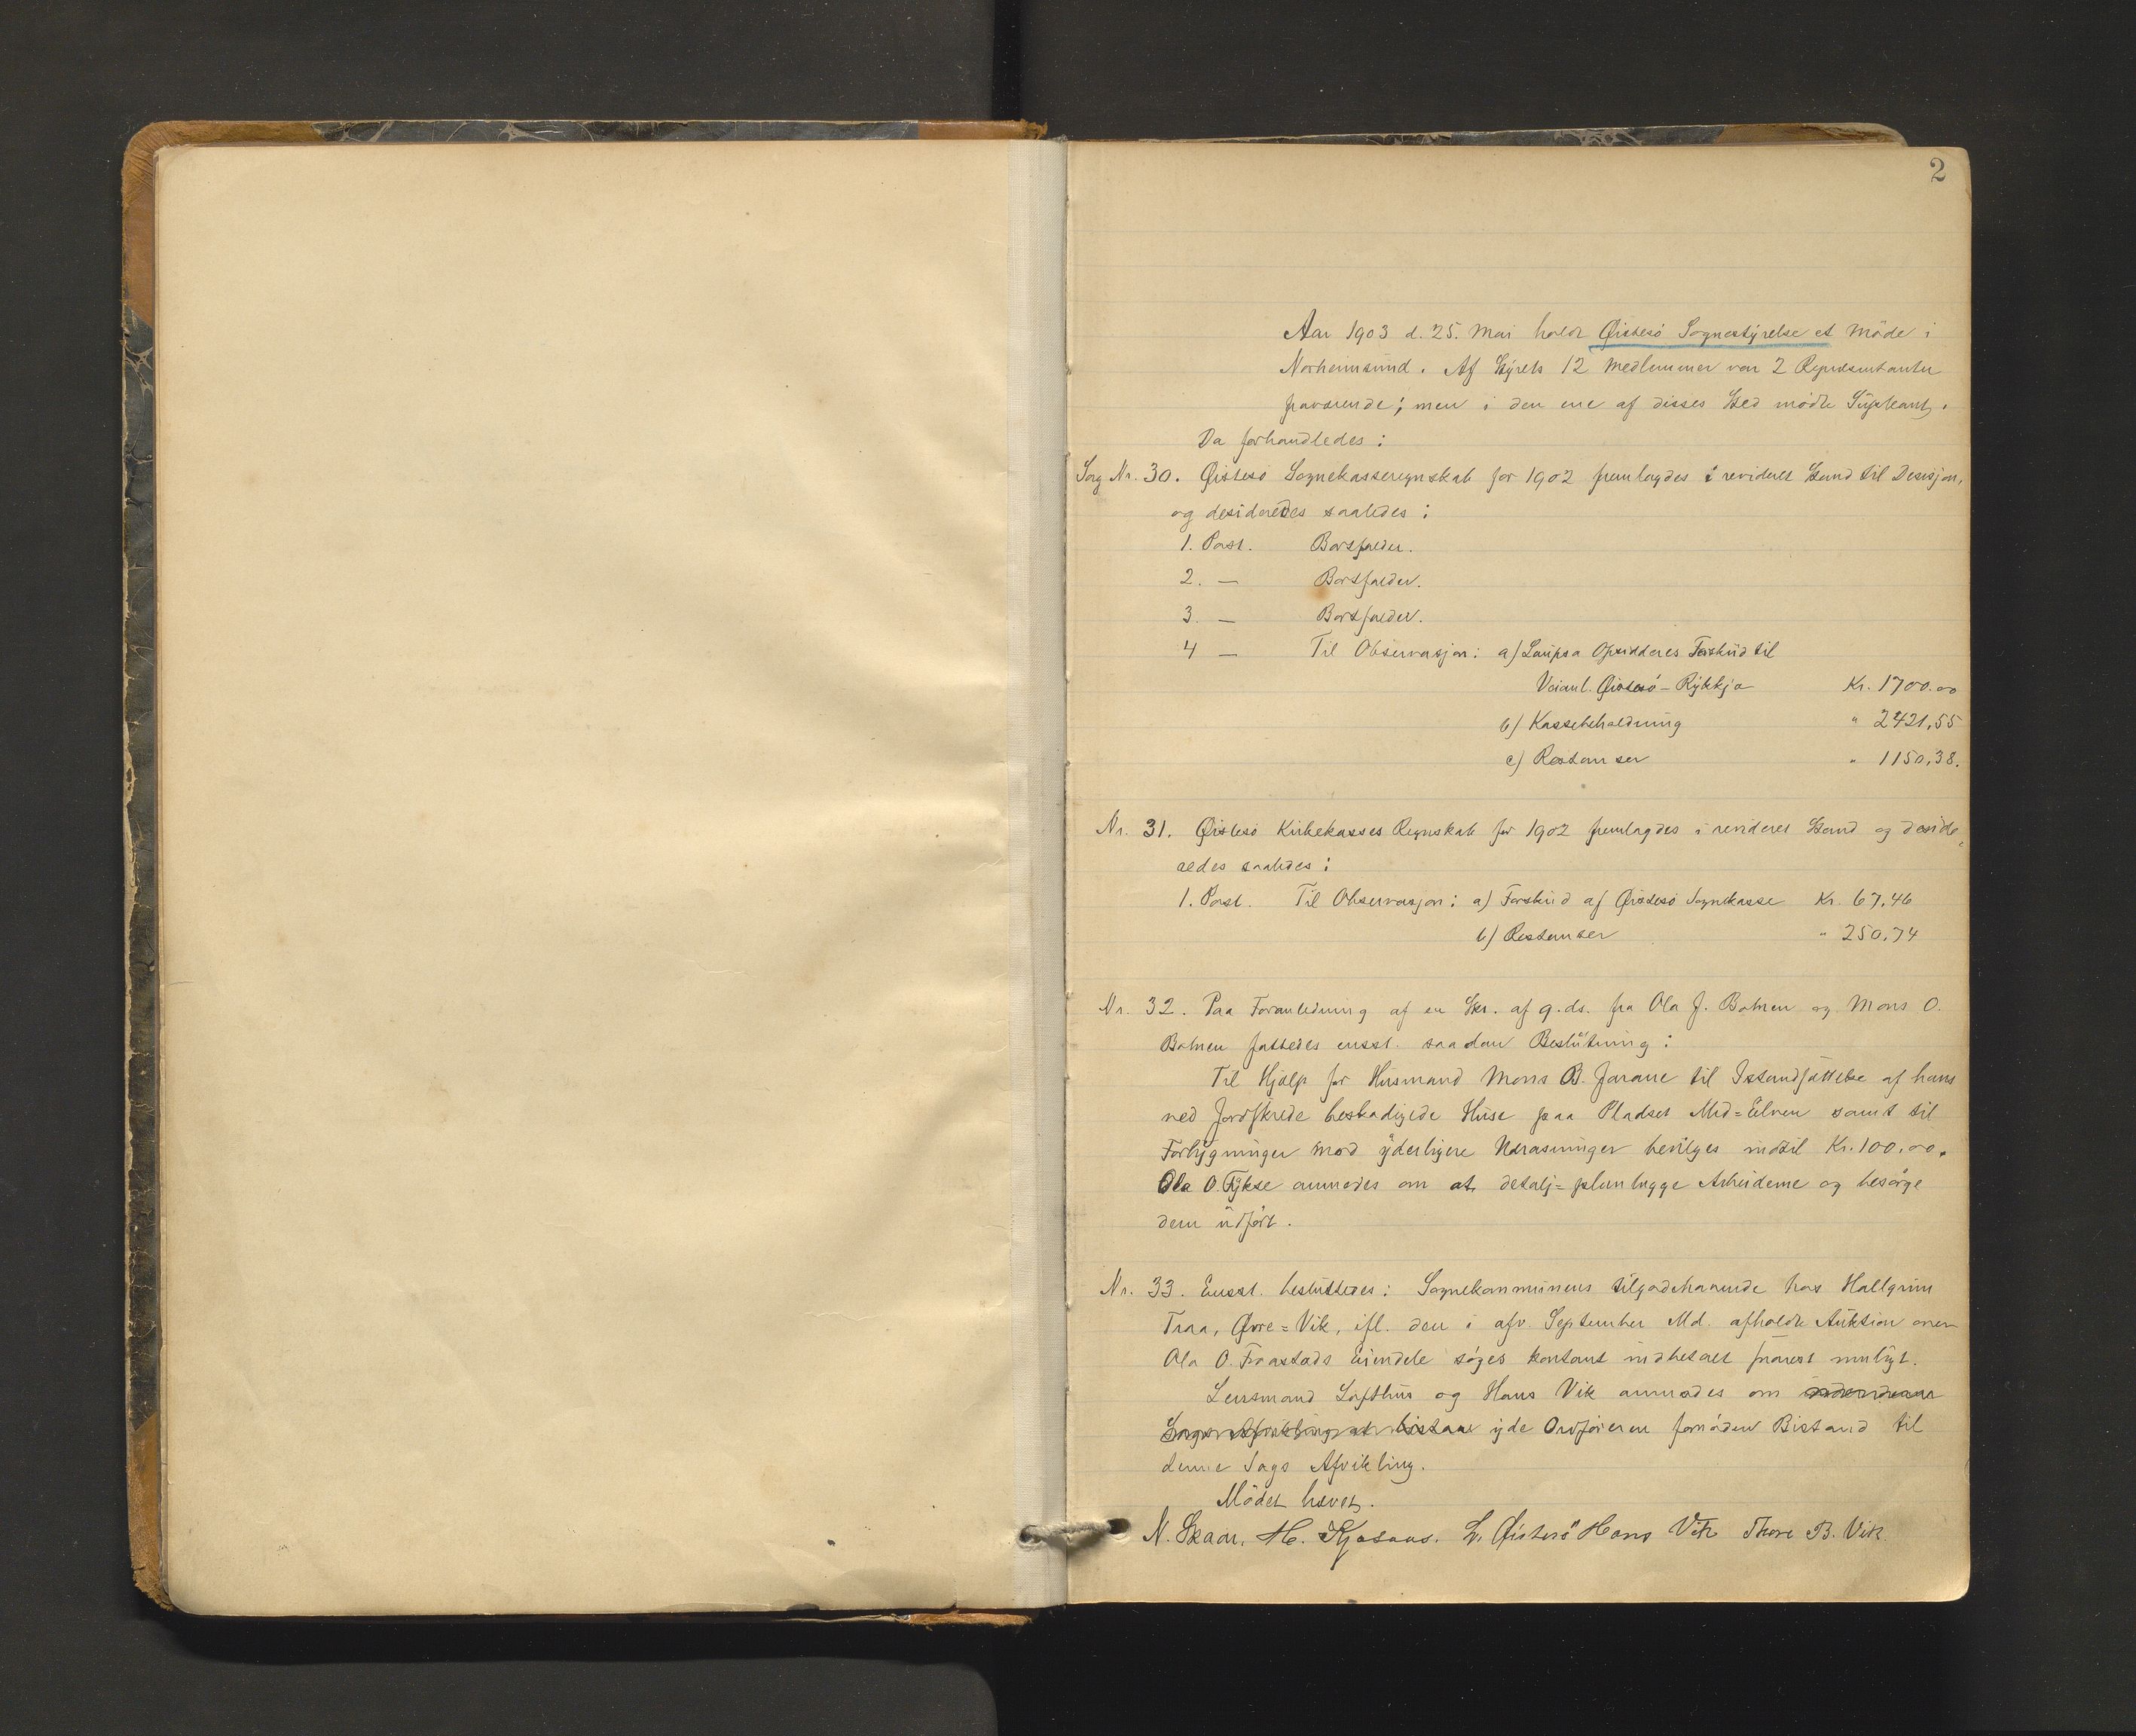 2
Aar 1903 d. 25. Mai holdt Øistesø Sognestyrelse et Møde i
Norheimsund. Af Styrets 12 Medlemmer var 2 Repræsentanter
fraværende; men i den ene af disses Sted mødte Supleant.
Da forhandledes:
Sag Nr. 30. Øistesø Sognekasseregnskab for 1902 fremlagdes i revideret Stand til Desisjon,
og desideredes saaledes:
1. Post. Bortfalder.
2. — Bortfalder.
3. — Bortfalder.
4 — Til Observasjon: a) Laupsa Opsidderes Forskud til
Veianl. Øistesø-Rykkja Kr. 1700.00
b) Kassebeholdning " 2421,55
c) Restanser " 1150,38.
Nr. 31. Øistesø Kirkekasses Regnskab for 1902 fremlagdes i revideret Stand og deside
redes saaledes:
1. Post. Til Observasjon: a) Forskud af Øistesø Sognekasse Kr. 67,46
b) Restanser " 250,74
Nr. 32. Paa Foranledning af en Skr. af 9. ds. fra Ola J. Botnen og Mons O.
Botnen fattedes enst. saadan Beslutning:
Til Hjælp for Husmand Mons B. til Istandsættelse af hans
ved Jordskrede beskadigede Huse paa Pladset Mid=Elven samt til
Forbygninger mod yderligere Udrasninger bevilges indtil Kr. 100.00.
Ola O. Fykse anmodes om at detalj=planlægge Arbeiderne og besørge
dem udført.
Nr. 33. Enst. besluttedes: Sognekommunens tilgodehavende hos Hallgrim
Traa, Øvre=Vik, ifl. den i afv. September Md. afholdte Auktion over
Ola O. Eiendele søges kontant indbetalt snarest muligt.
Lensmand Lofthus og Hans Vik anmodes om
yde Ordføreren fornøden Bistand til
denne Sags Afvikling.
Mødet hævet.
N. Skaar. H. L. Øistesø Hans Vik Thore B. Vik.